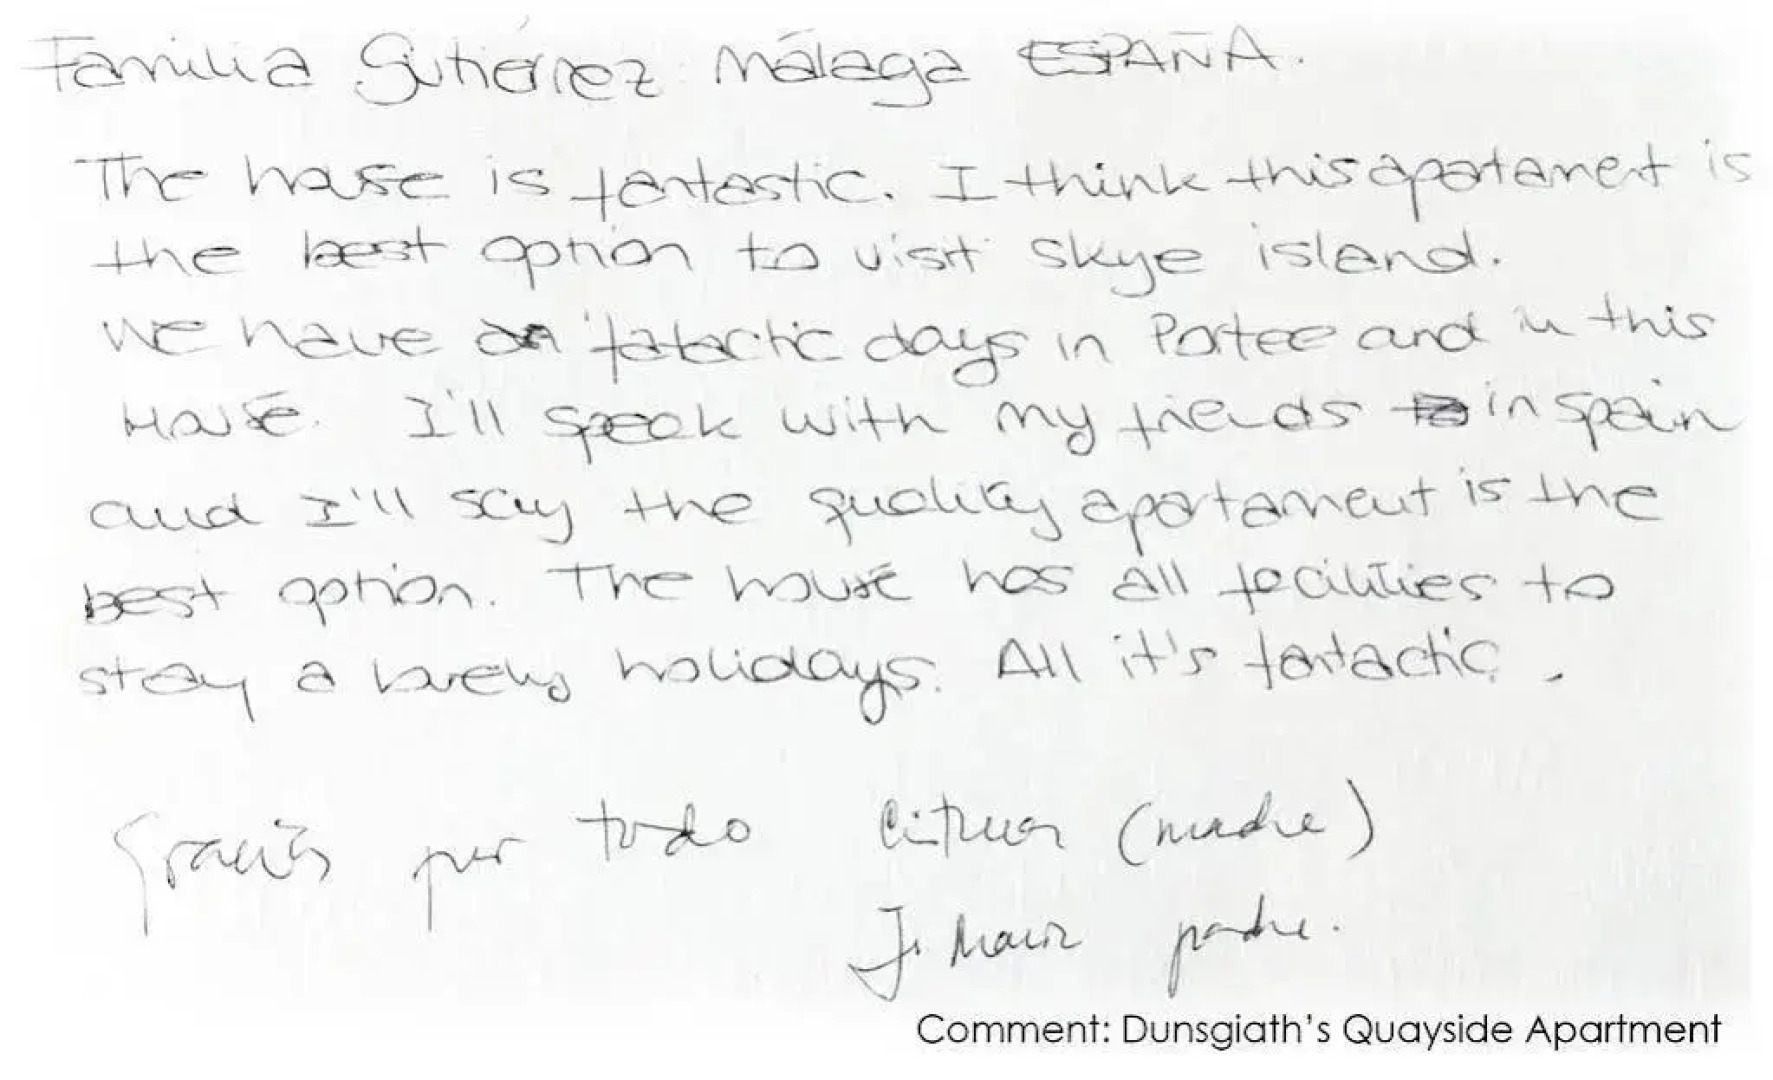 Familia Gutiérrez Málaga ESPAÑA.
The house is fantastic. I think this apartament is
the best option to visit Skye island.
We have fatactic days in Portee and in this
House. I'll speak with my friends in Spain
and I'll say the quality apartament is the
best option. The house has all facilities to
stay a lovely holidays. All it's fantactic.
Gracias por todo (madre)
J. padre.
Comment: Dunsgiath's Quayside Apartment